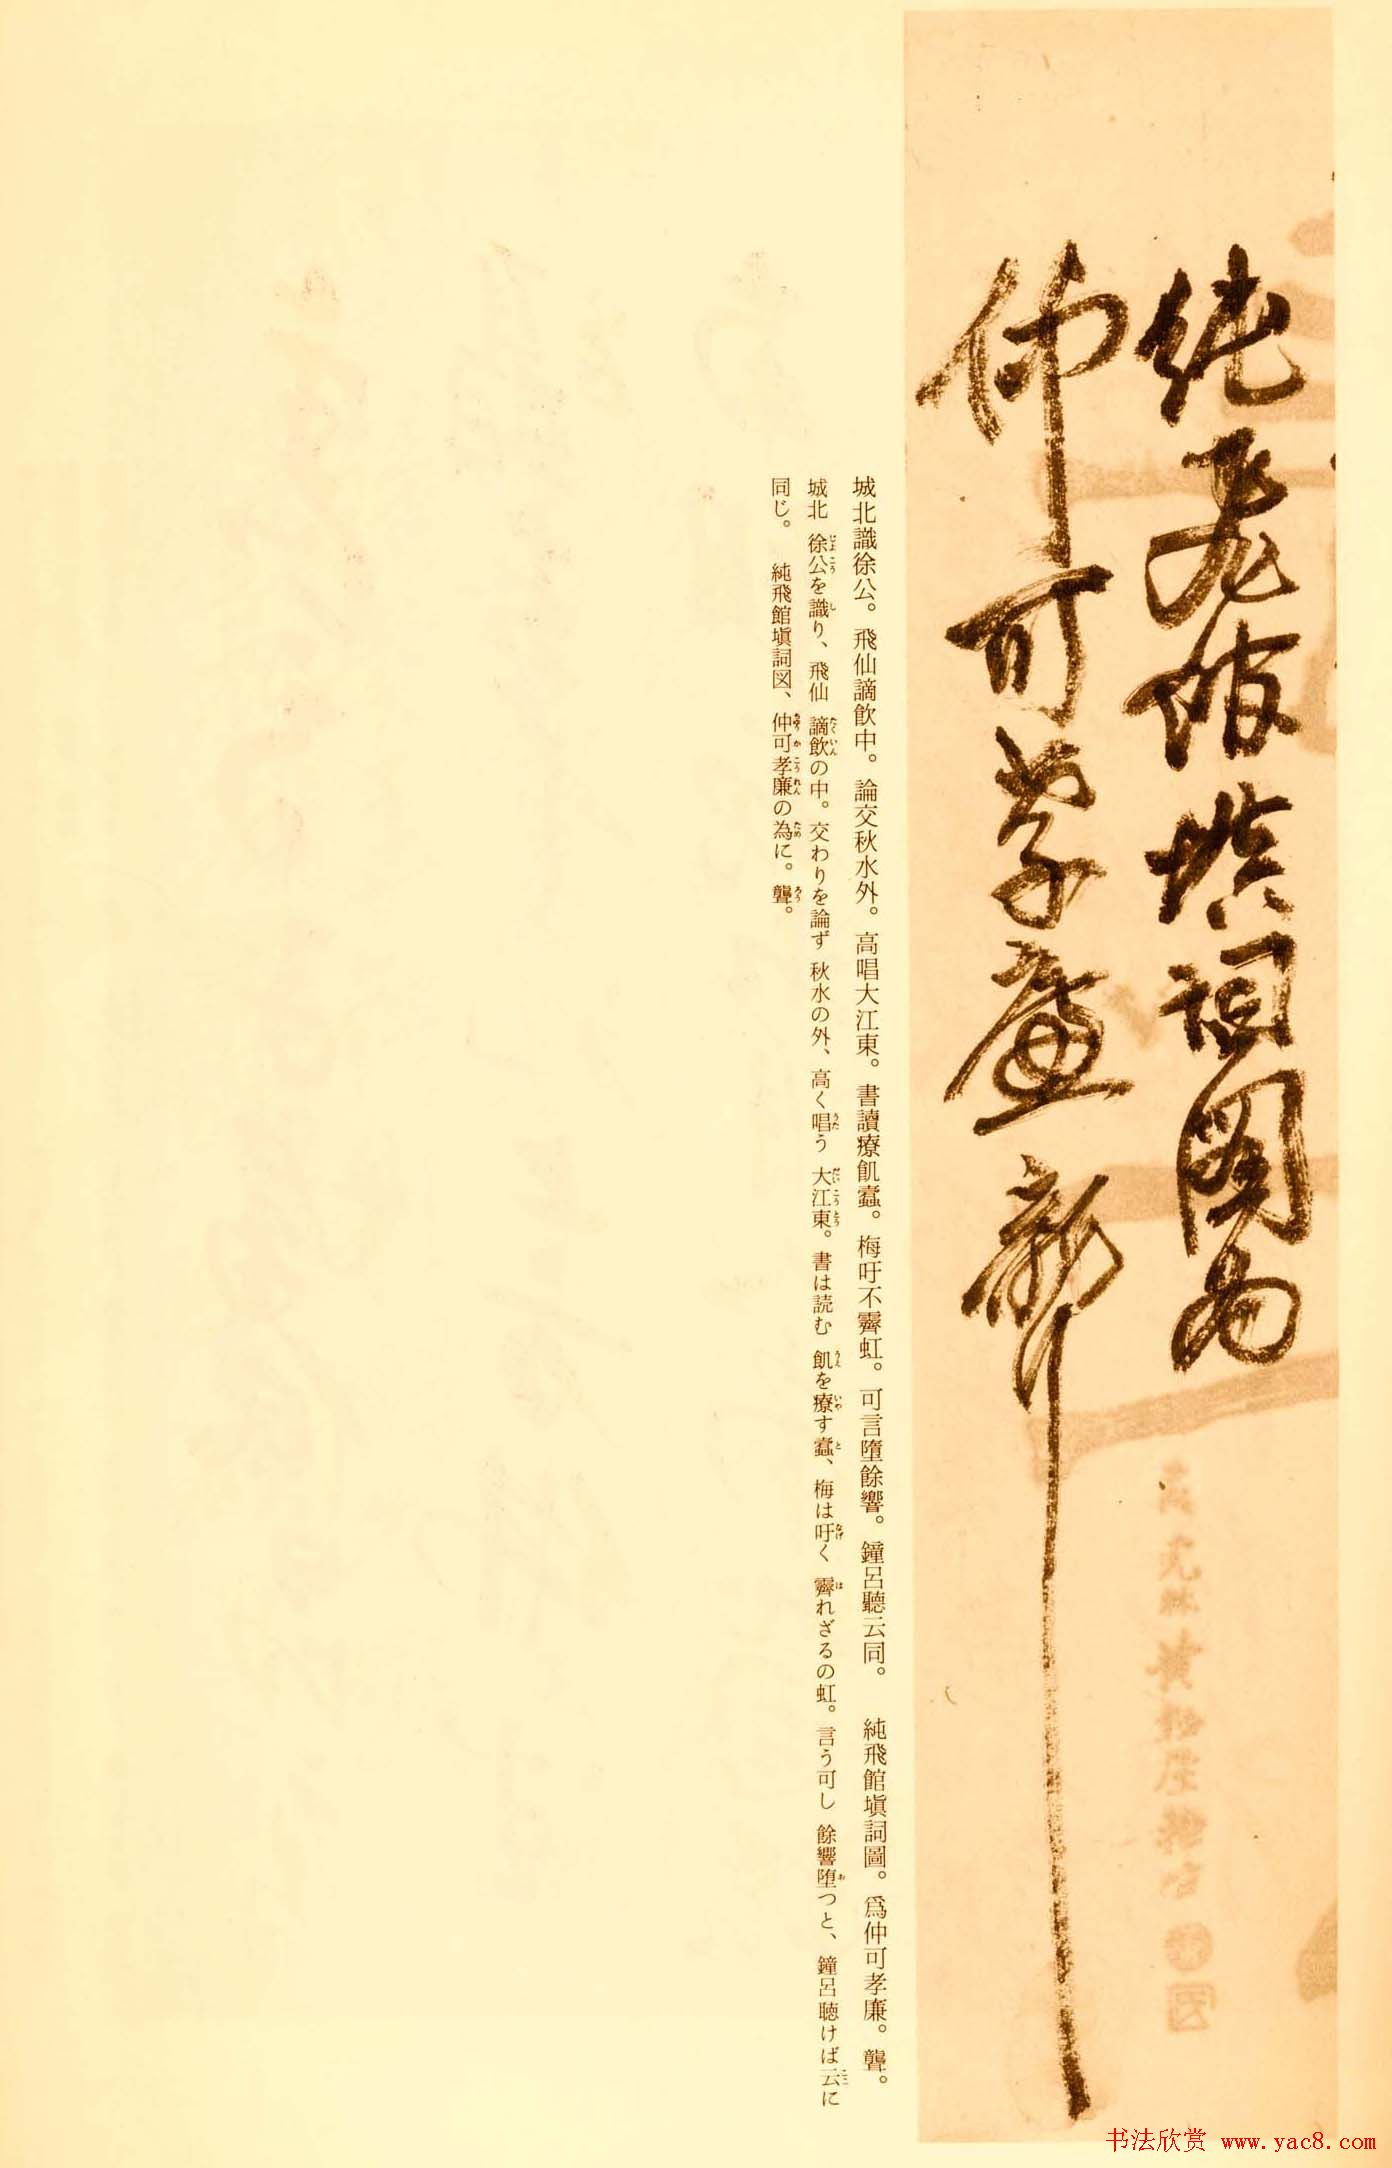 純飛館填詞圖為
仲可孝廉聾
城北識徐公。飛仙謫飲中。論交秋水外。高唱大江東。書讀療飢蠹。梅吁不霽虹。可言墮餘響。鐘呂聽云同。　純飛館塡詞圖。爲仲可孝廉。聾。
城北　徐公を識り、飛仙　謫飲の中。交わりを論ず　秋水の外、高く唱う　大江東。書は読む　飢を療す蠹、梅は吁く　霽れざるの虹。言う可し　餘響堕つと、鐘呂聴けば云に
同じ。　純飛館塡詞図、仲可孝廉の為に。聾。
书法欣赏 www.yac8.com